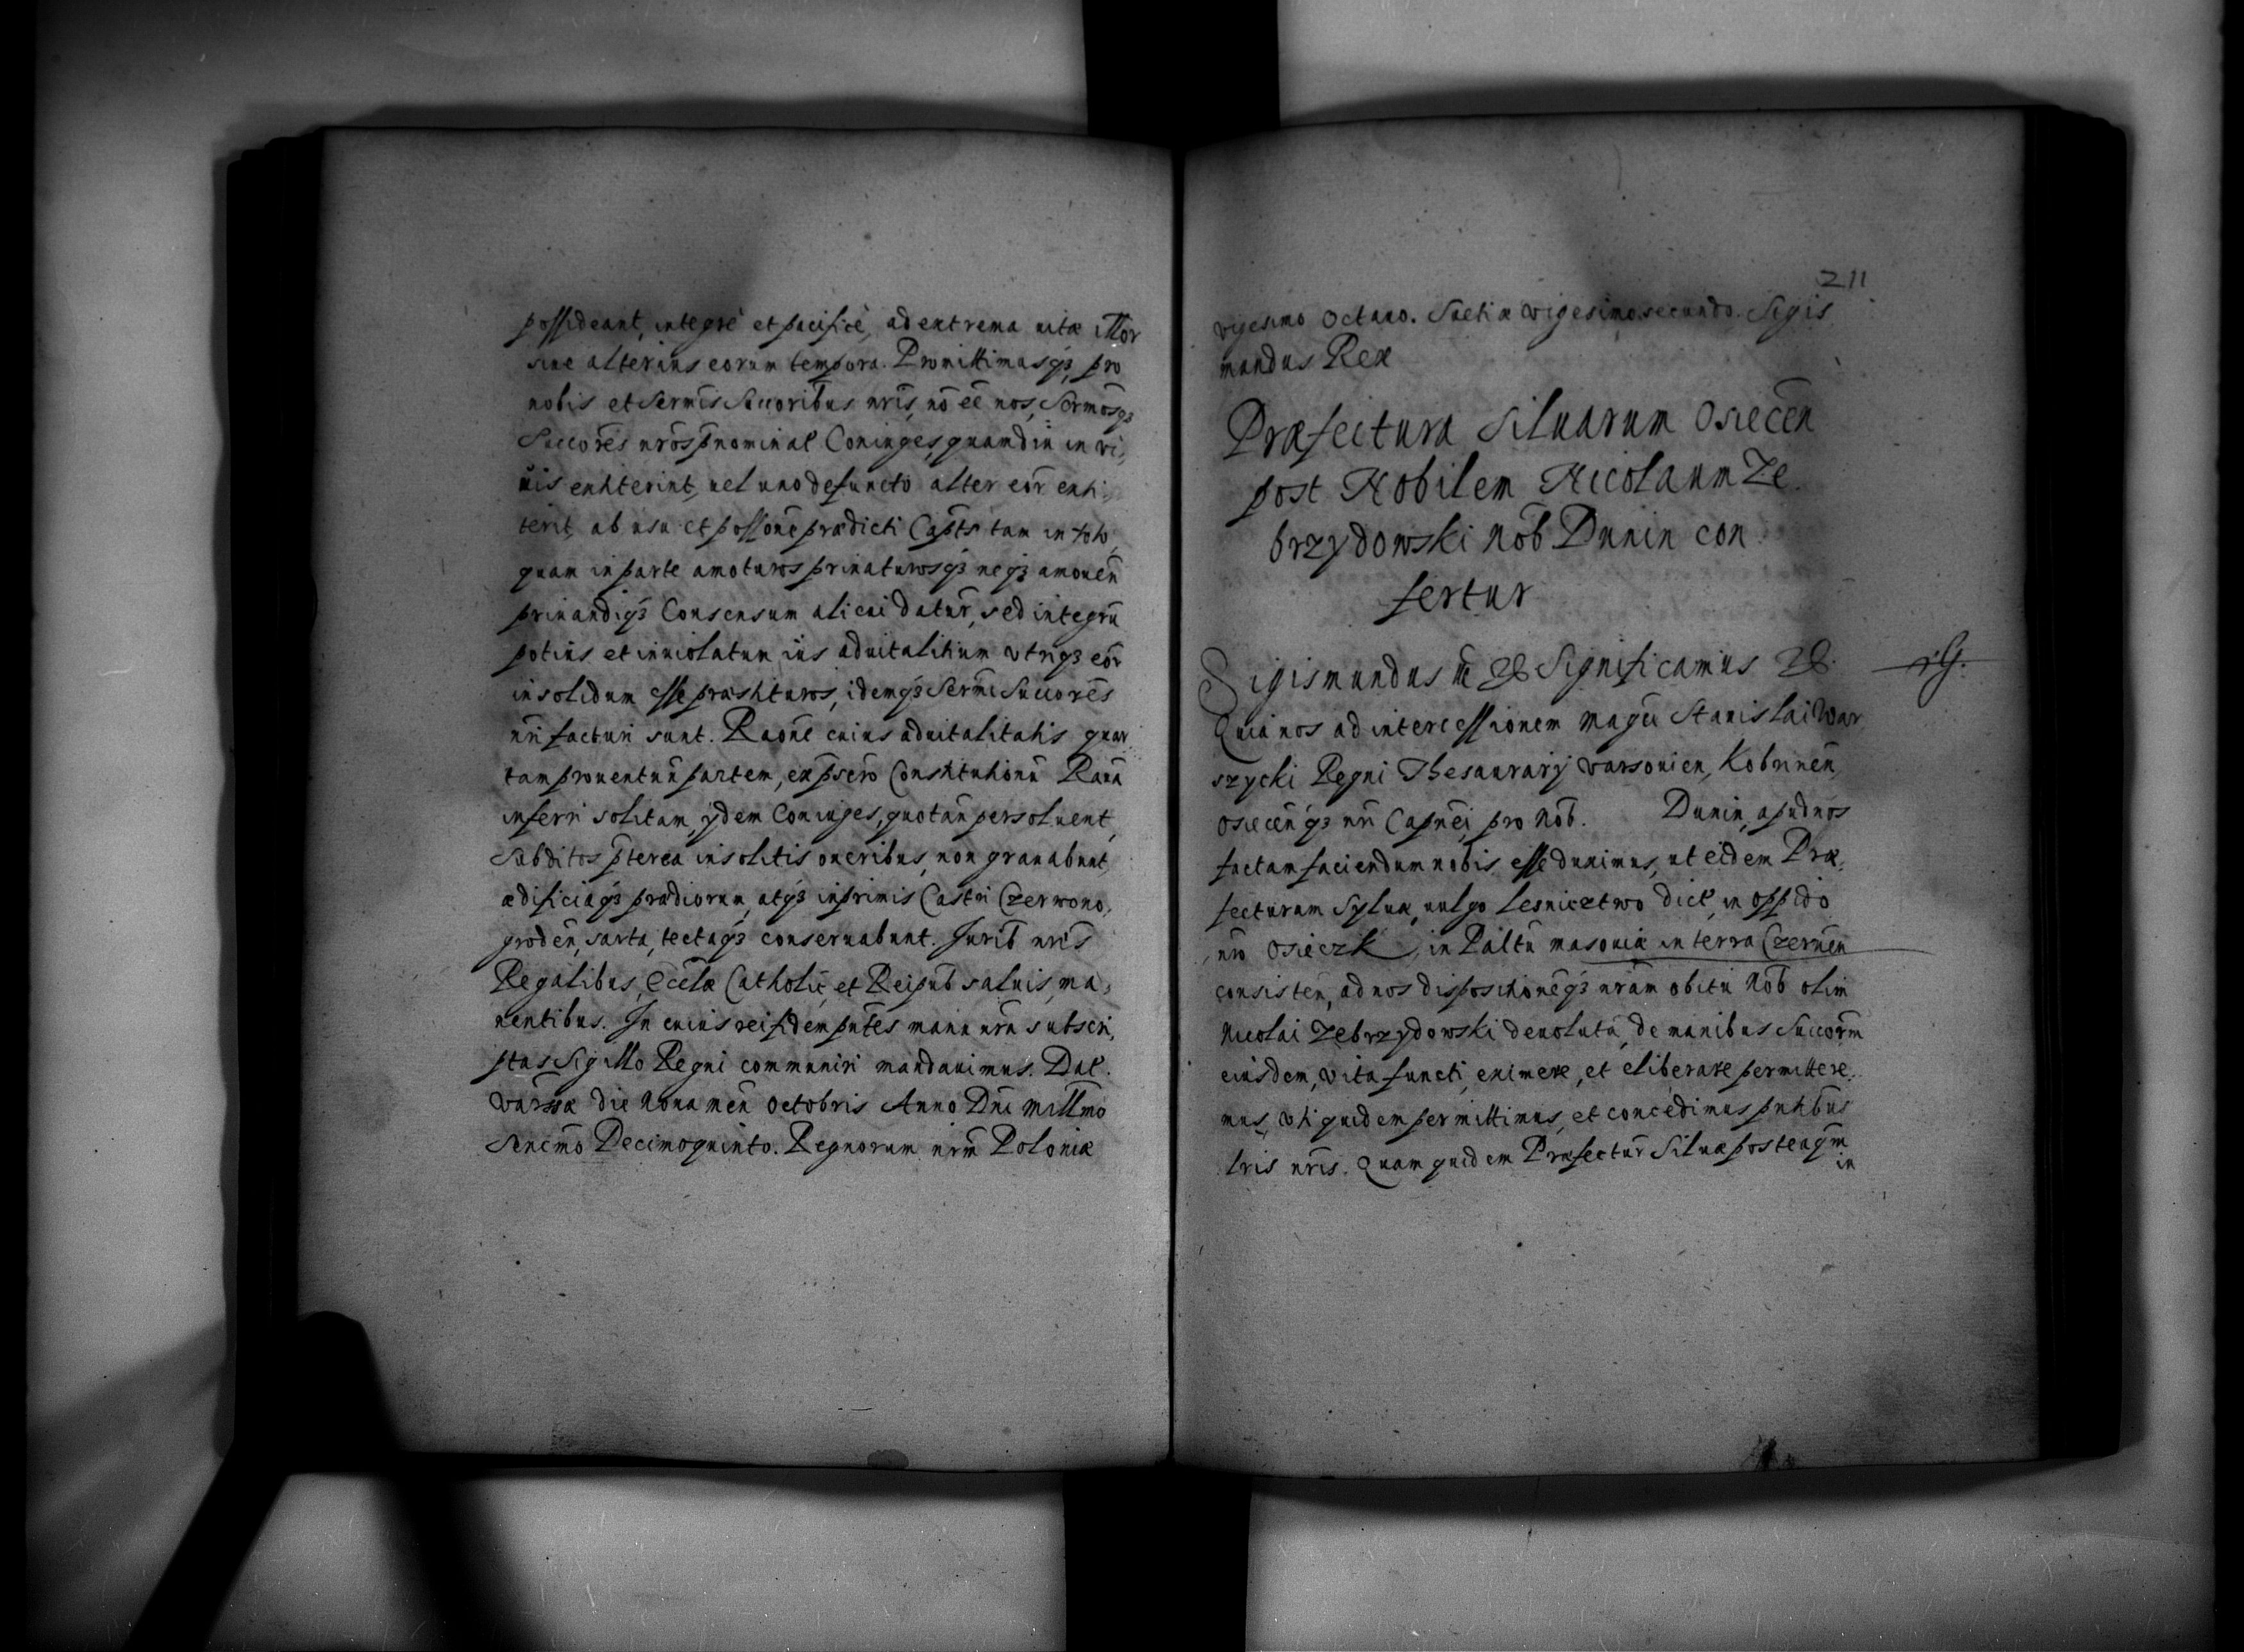 possideant, integrè et pacificè, ad extrema vitæ illor
siue alterius eorum tempora. Promittimusqȝ, pro
nobis et Sermis Succoribus nris, nō eē nos, Sermosqȝ
Succores nros pnominat Coniuges, quamdiu in vi,
uis exstiterint, uel uno defuncto alter eor exti
terit, ab usu et possone prædicti Capts tam in toto,
quam in parte amoturos priuaturosqȝ neqȝ amouen
priuandiqȝ Consensum alicui datur, sed integru
potius et inuiolatum ius aduitalitium vtriqȝ eor
in solidum esse præstituros, idemqȝ Sermi Succores
nri facturi sunt. Raone cuius aduitalitatis quar
tam prouentuū partem, ex pscro Constitutionū Raua
inferri solitam, ydem Coniuges, quotan persoluent,
Subditos pterea insolitis oneribus, non grauabunt,
ædificiaqȝ prædiorum, atqȝ inprimis Castri Czerwono,
groden, sarta, tectaqȝ conseruabunt. Jurib nris
Regalibus, Eccłæ Catholic, et Reipub saluis, ma,
nentibus. In cuius rei fidem pntes manu nra subscri,
ptas Sigillo Regni communiri mandauimus. Dat.
Varsæ die Nona men Octobris Anno Dni Millmo
Sexcmo Decimoquinto. Regnorum nrm Poloniæ
211
vigesimo Octauo. Suetiæ vigesimosecundo. Sigis
mundus Rex
Præfectura Siluarum Osiecen
post Nobilem Nicolaum Ze
brzydowski Nob Dunin con
fertur
Sigismundus III ꝛc Significamus ꝛc.
rG.
Quia nos ad intercessionem Magci Stanislai War
szycki Regni Thesaurarij Varsouien, Kobrinen,
Osiecenqȝ nri Capnei, pro Nob. Dunin, apud nos
factam faciendum nobis esse duximus, ut eidem Præ,
fecturam Syluæ, uulgo Lesnictwo dict, in oppido
nro Osieczk, in Paltu Masouiæ in terra Czernen
consisten, ad nos dispositioneqȝ nram obitu Nob olim
Nicolai Zebrzydowski deuoluta, de manibus Succorm
eiusdem, vita functi, eximere, et eliberare permittere,
mus, vti quidem permittimus, et concedimus pntibus
lris nris. Quam quidem Præfectur Siluæ posteaqm
in